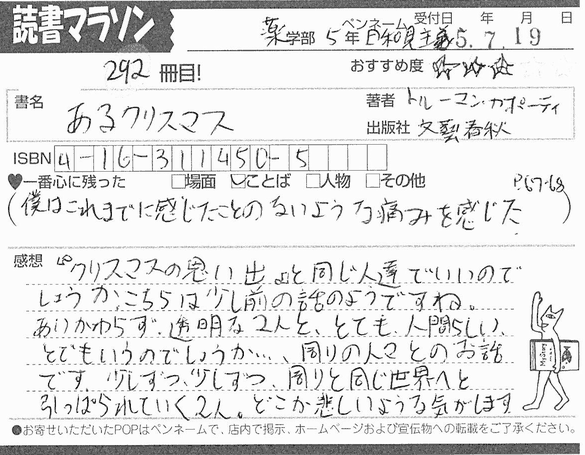 読書マラソン
薬学部 5年 ペンネーム 日和見主義 受付日 年 月 日 5.7.19
292 冊目! おすすめ度 ☆☆☆
書名 あるクリスマス
著者 トルーマン・カポーティ
出版社 文藝春秋
ISBN 4-16-311450-5
♥一番心に残った □場面 ☑ことば □人物 □その他 P67-68
(僕はこれまでに感じたことのないような痛みを感じた)
感想 『クリスマスの思い出』と同じ人達でいいので
しょうか、こちらは少し前の話のようですね。
あいかわらず、透明な2人と、とても、人間らしい、
とでもいうのでしょうか…、周りの人々とのお話
です。少しずつ、少しずつ、周りと同じ世界へと
引っぱられていく2人。どこか悲しいような気がします
●お寄せいただいたPOPはペンネームで、店内で掲示、ホームページおよび宣伝物への転載をご了承ください。